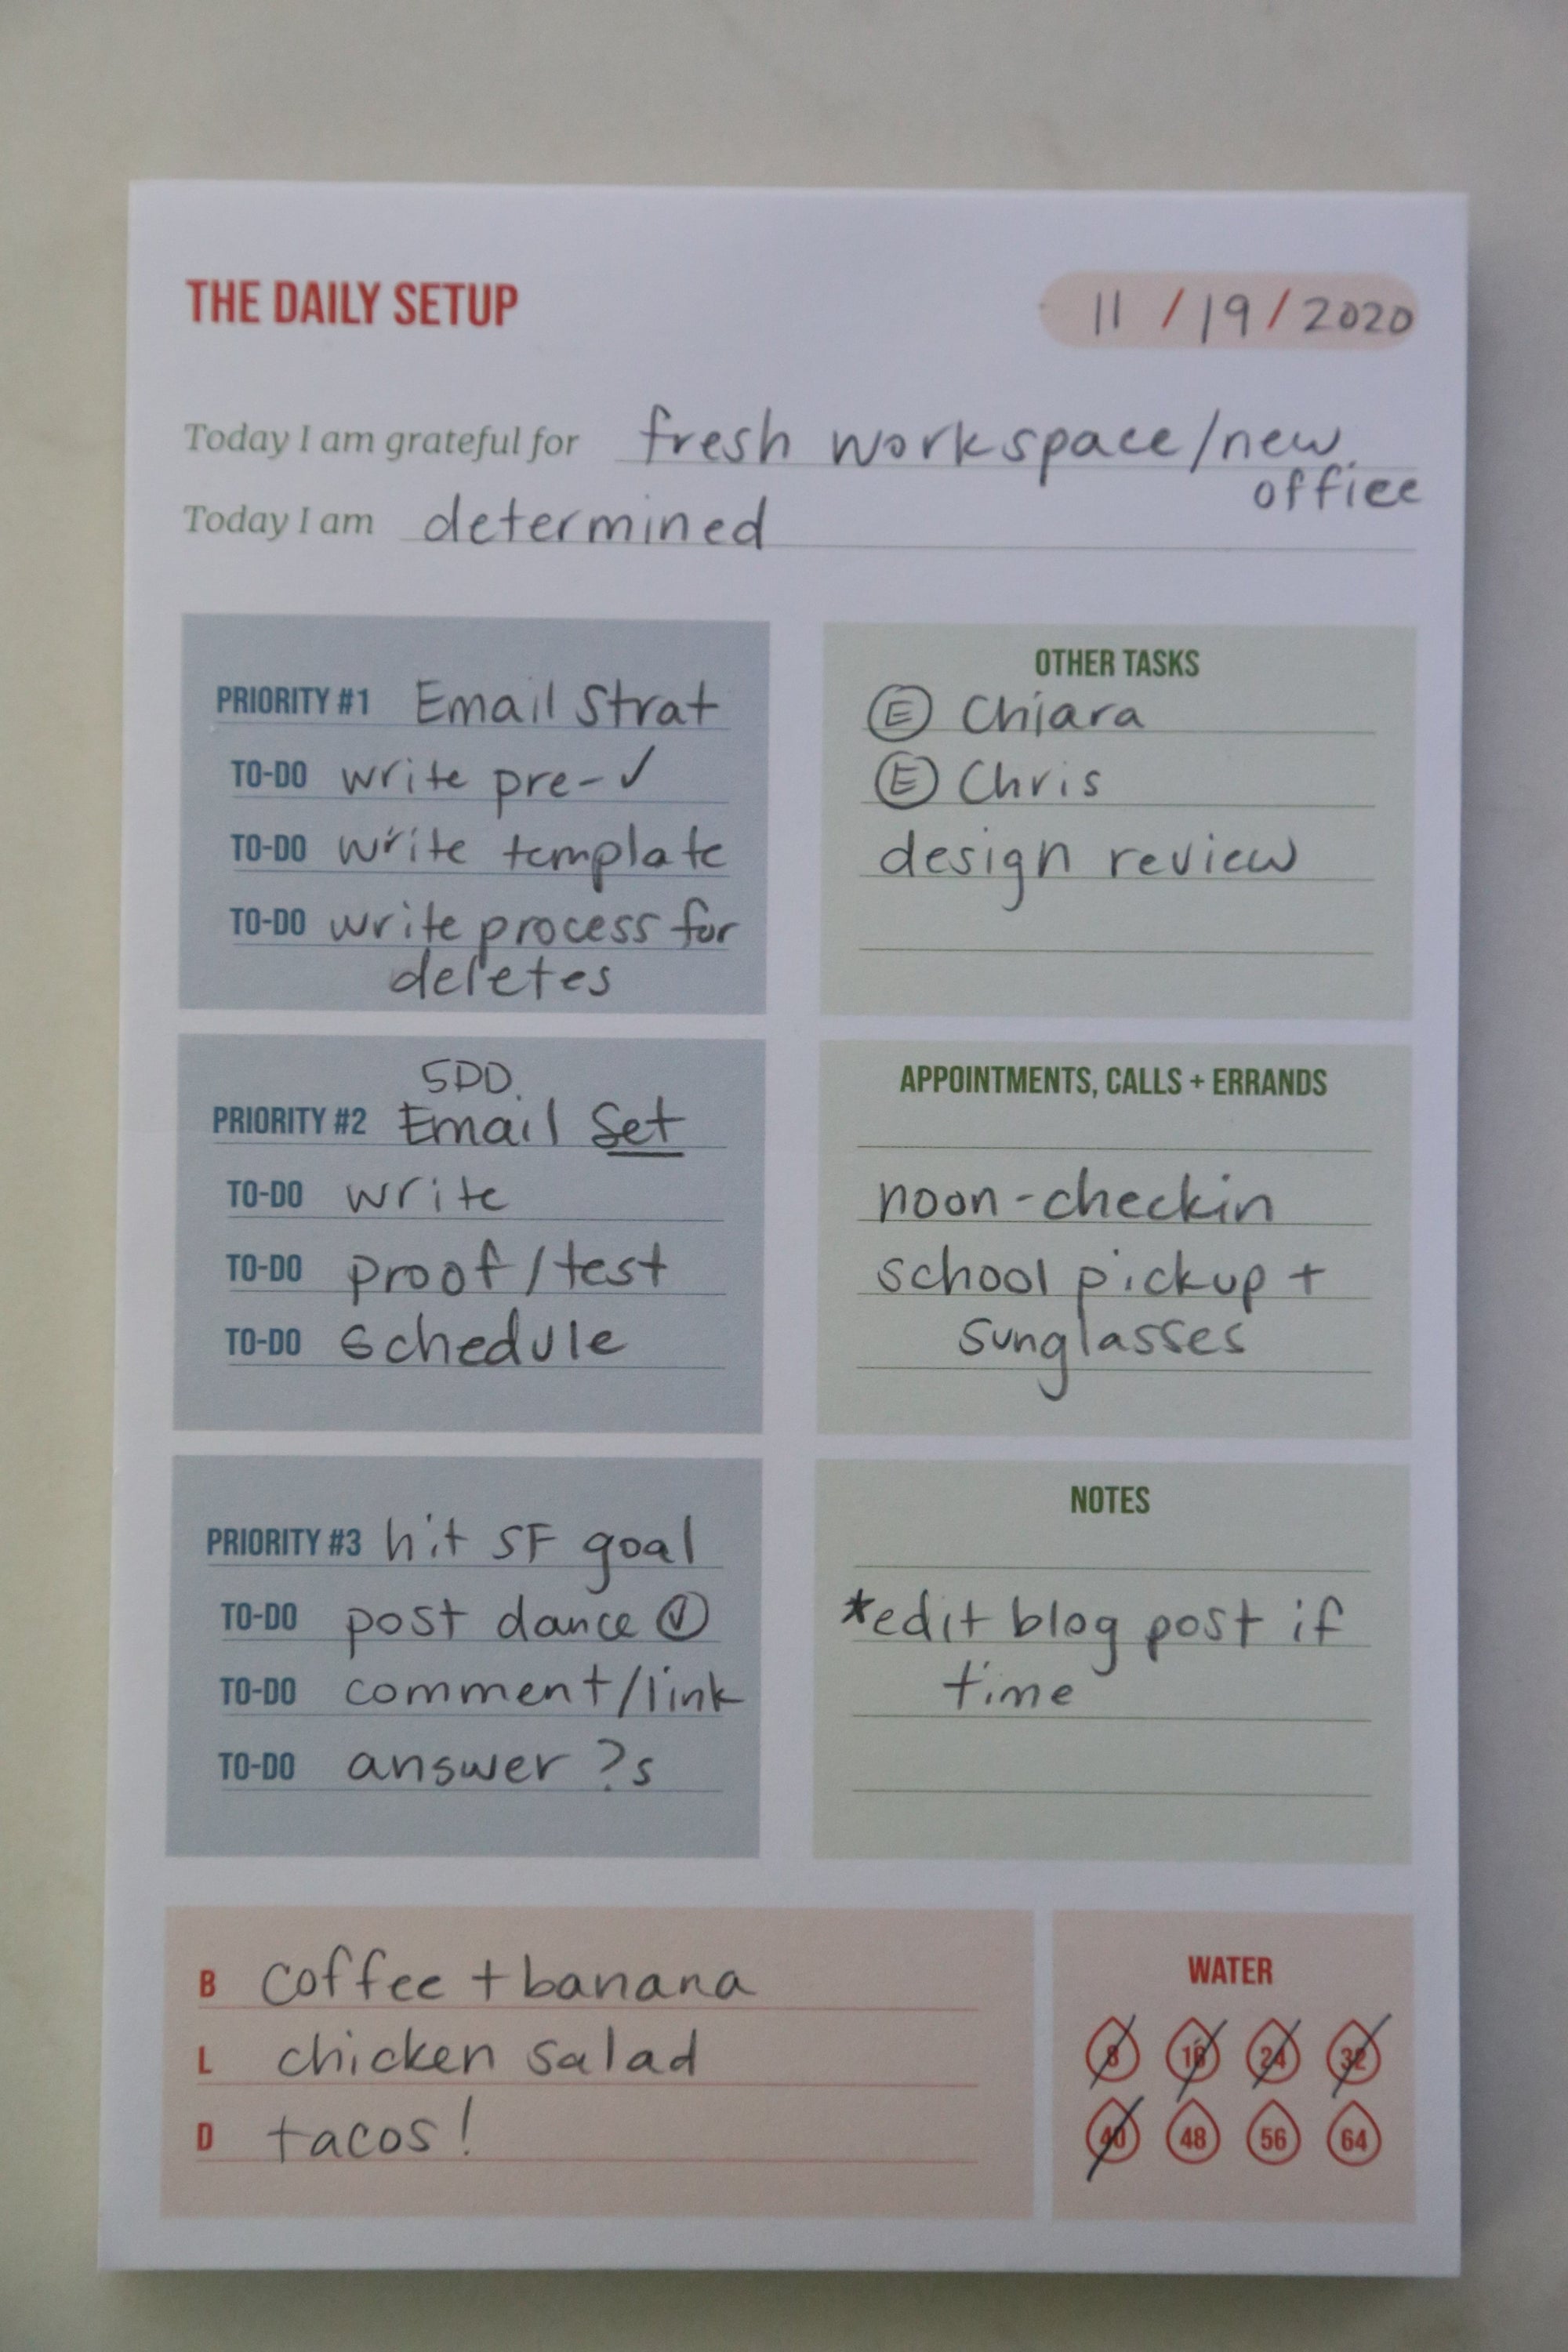 THE DAILY SETUP
11 / 19 / 2020
Today I am grateful for fresh workspace/new
office
Today I am determined
PRIORITY #1 Email Strat
TO-DO write pre-✓
TO-DO write template
TO-DO write process for
deletes
OTHER TASKS
Ⓔ Chiara
Ⓔ Chris
design review
5DD.
PRIORITY #2 Email Set
TO-DO write
TO-DO proof/test
TO-DO schedule
APPOINTMENTS, CALLS + ERRANDS
noon-checkin
school pickup +
sunglasses
PRIORITY #3 hit SF goal
TO-DO post dance ✓
TO-DO comment/link
TO-DO answer ?s
NOTES
*edit blog post if
time
B coffee + banana
L chicken salad
D tacos!
WATER
8 16 24 32
40 48 56 64